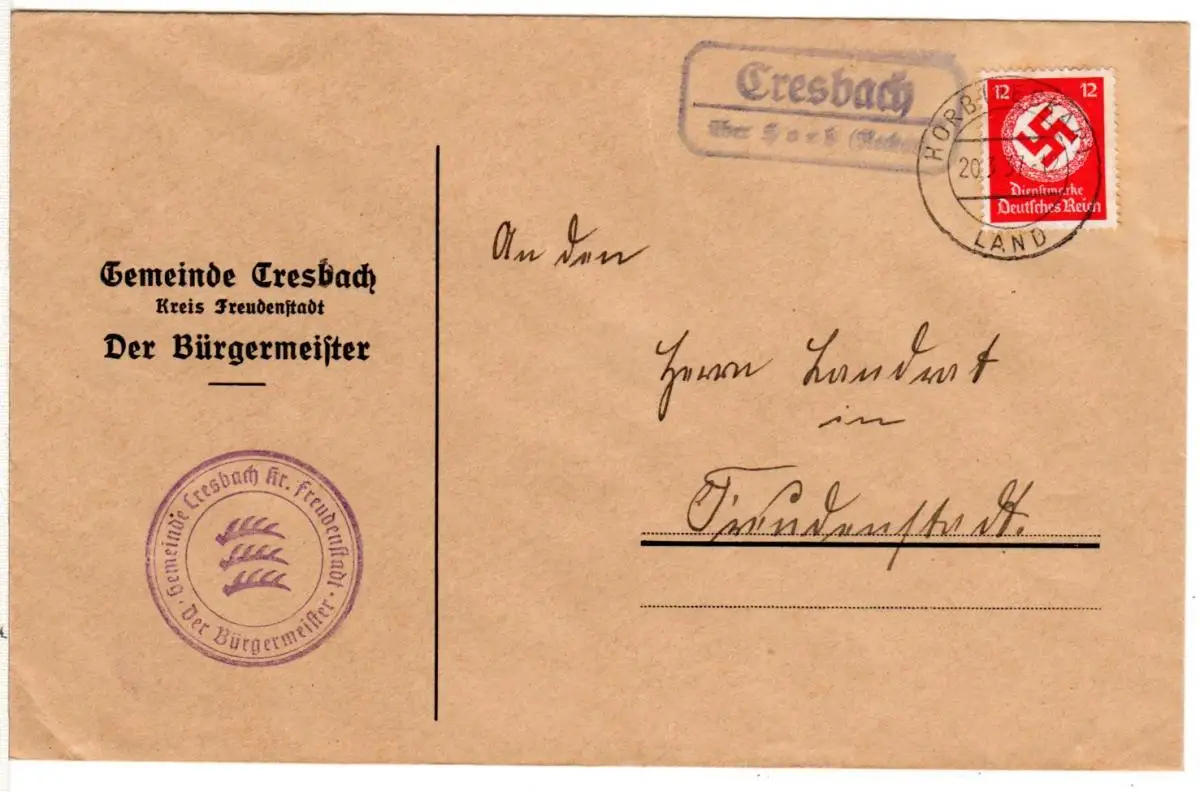 Cresbach
über Horb (Neckar)
HORB (NECKAR)
20.3
LAND
12 12
Dienstmarke
Deutsches Reich
Gemeinde Cresbach
Kreis Freudenstadt
Der Bürgermeister
An den
Herrn Landrat
in
Freudenstadt.
Gemeinde Cresbach Kr. Freudenstadt
Der Bürgermeister